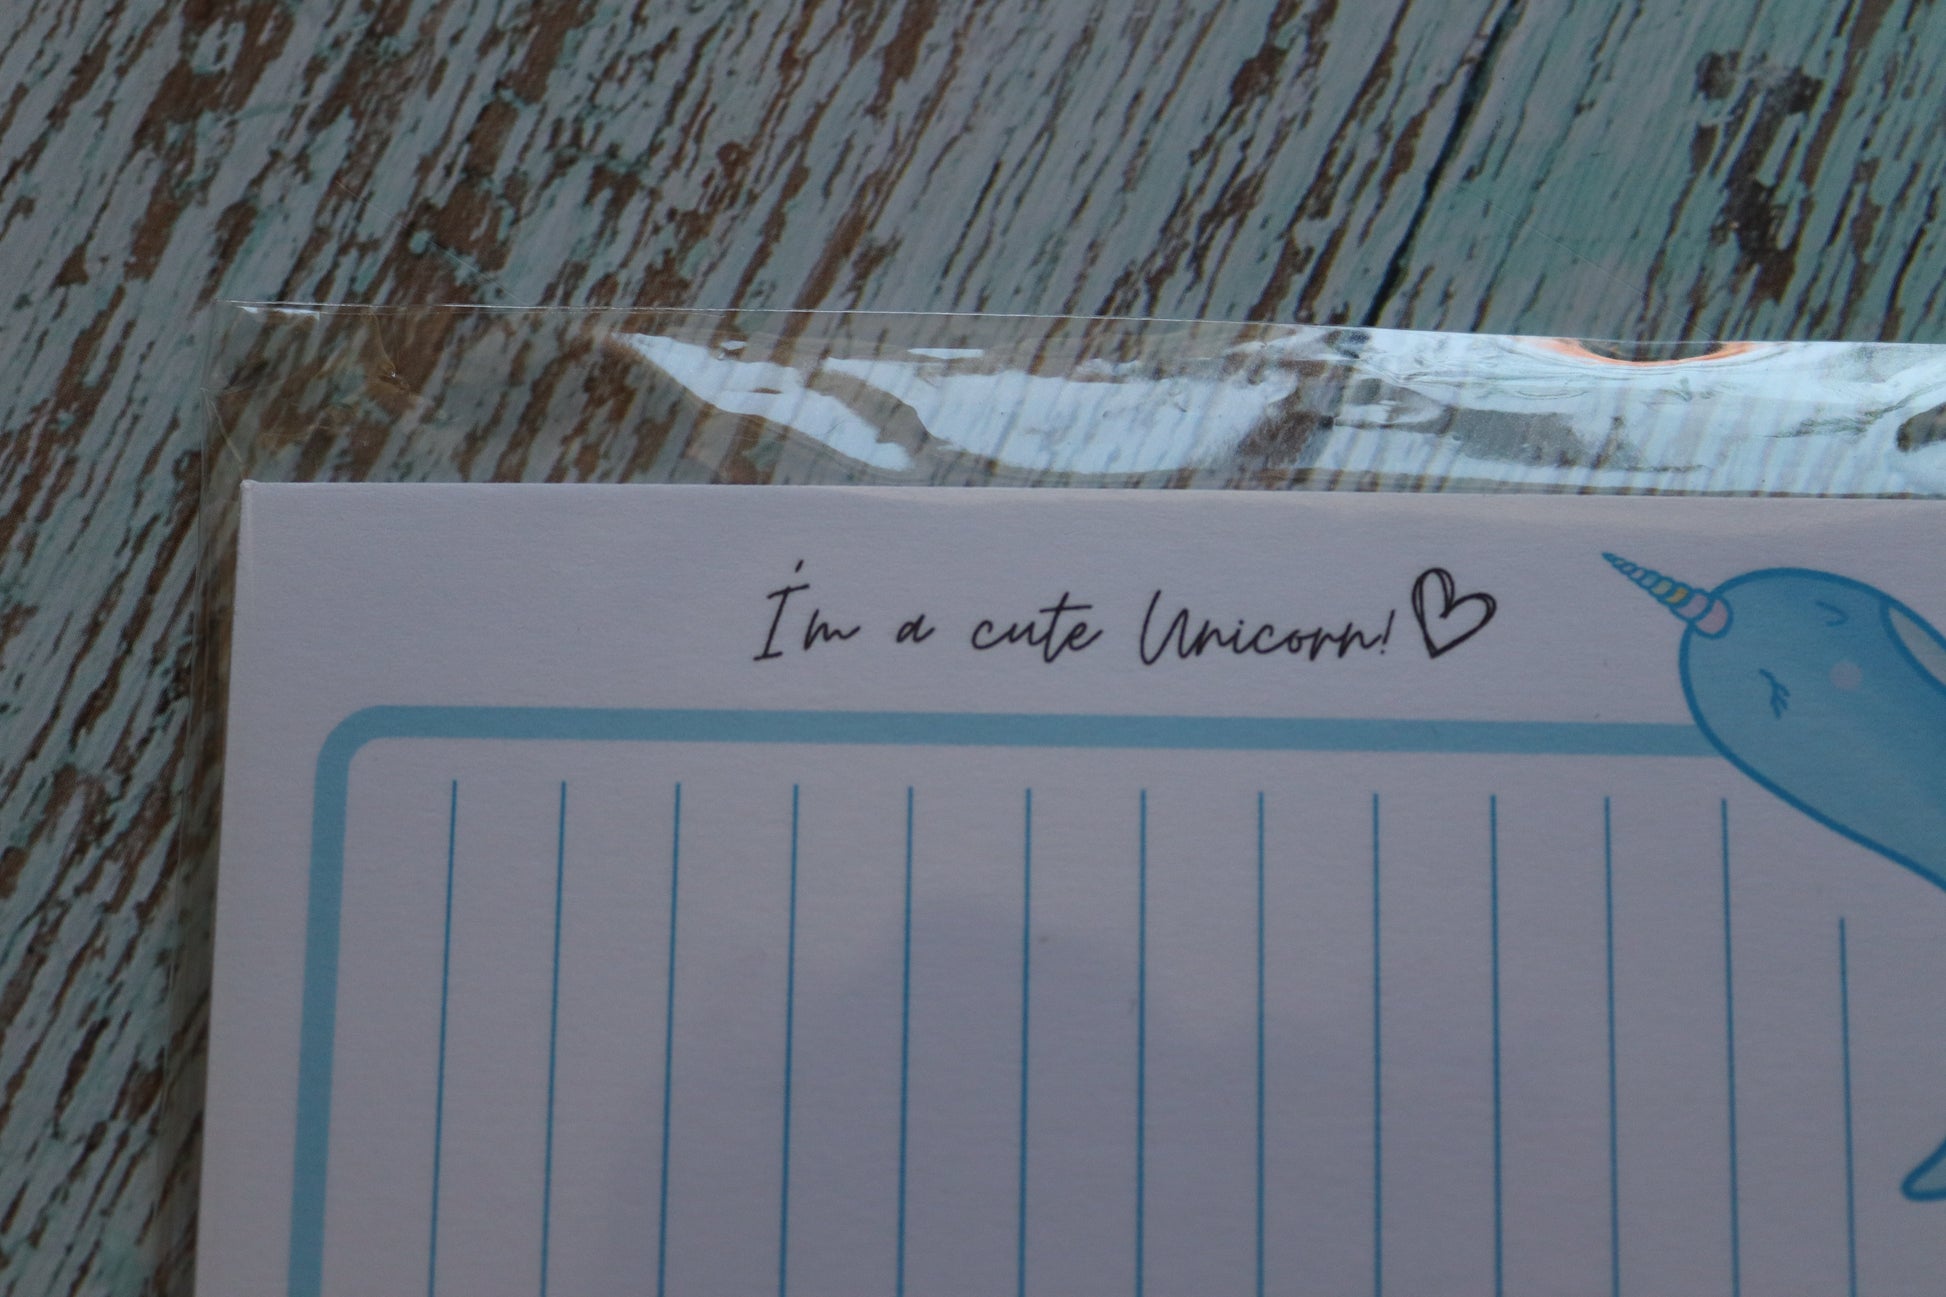 I'm a cute Unicorn!